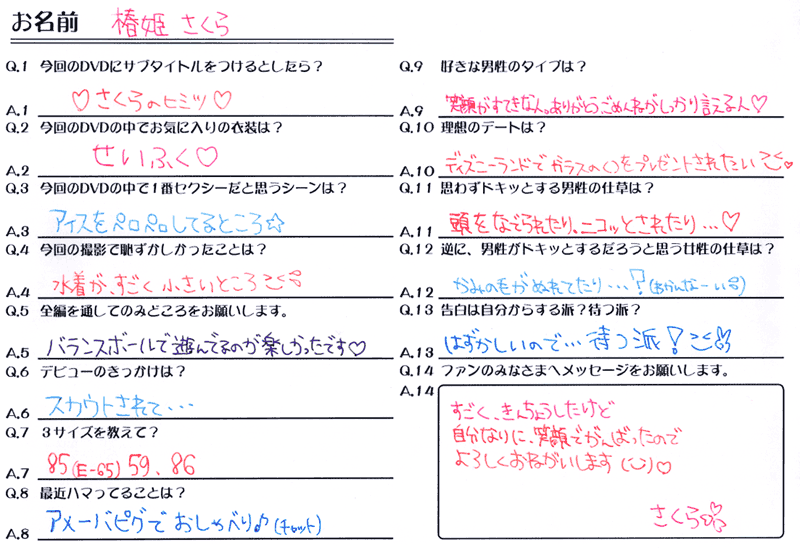 お名前 椿姫 さくら
Q.1 今回のDVDにサブタイトルをつけるとしたら？
A.1 ♡さくらのヒミツ♡
Q.2 今回のDVDの中でお気に入りの衣装は？
A.2 せいふく♡
Q.3 今回のDVDの中で1番セクシーだと思うシーンは？
A.3 アイスをペロペロしてるところ☆
Q.4 今回の撮影で恥ずかしかったことは？
A.4 水着が、すごく小さいところ
Q.5 全編を通してのみどころをお願いします。
A.5 バランスボールで遊んでるのが楽しかったです♡
Q.6 デビューのきっかけは？
A.6 スカウトされて・・・
Q.7 3サイズを教えて？
A.7 85(E-65) 59、86
Q.8 最近ハマってることは？
A.8 アメーバピグでおしゃべり♪(チャット)
Q.9 好きな男性のタイプは？
A.9 笑顔がすてきな人。ありがとうごめんねがしっかり言える人♡
Q.10 理想のデートは？
A.10 ディズニーランドでガラスのくつをプレゼントされたい
Q.11 思わずドキッとする男性の仕草は？
A.11 頭をなでられたり。ニコッとされたり…♡
Q.12 逆に、男性がドキッとするだろうと思う女性の仕草は？
A.12 かみの毛がぬれてたり…？(わかんなーい)
Q.13 告白は自分からする派？待つ派？
A.13 はずかしいので…待つ派！
Q.14 ファンのみなさまへメッセージをお願いします。
A.14
すごく、きんちょうしたけど
自分なりに、笑顔でがんばったので
よろしくおねがいします(¨)♡
さくら